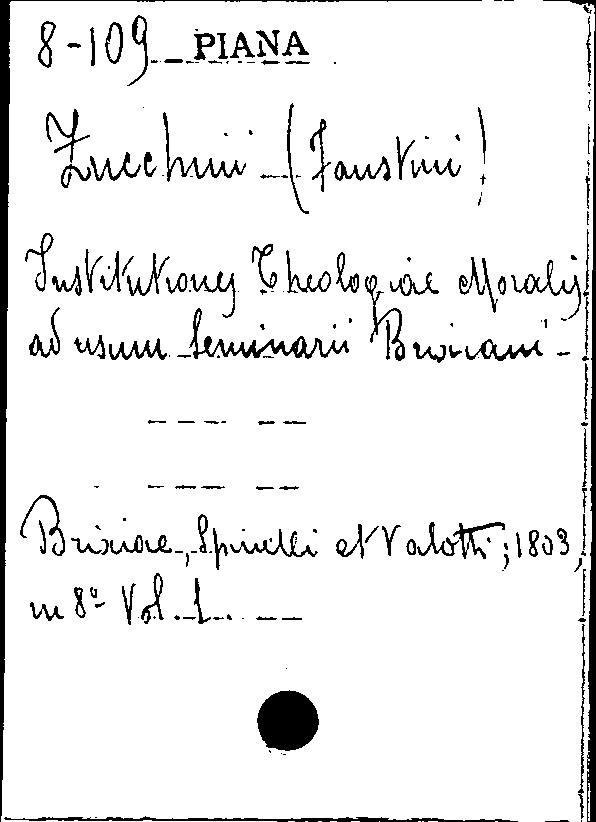 8-109 PIANA
Zucchini (Faustini)
Institutiones Theologiae Moralis
ad usum Seminarii Brixiani -
Brixiae, Spinelli et Valotti; 1803,
in 8º Vol. 1.